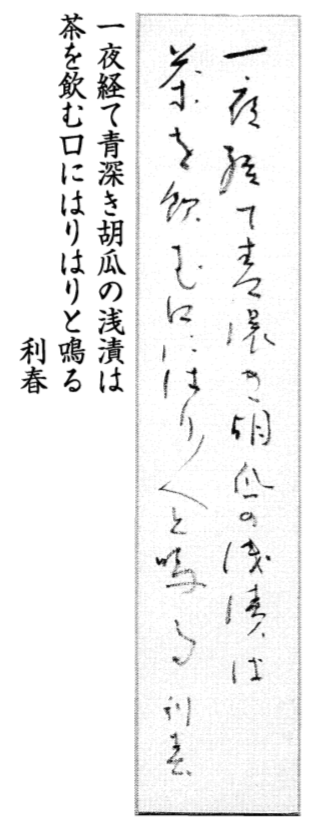 一夜経て青深き胡瓜の浅漬は
茶を飲む口にはり〱と鳴る 利春
一夜経て青深き胡瓜の浅漬は
茶を飲む口にはりはりと鳴る
利春